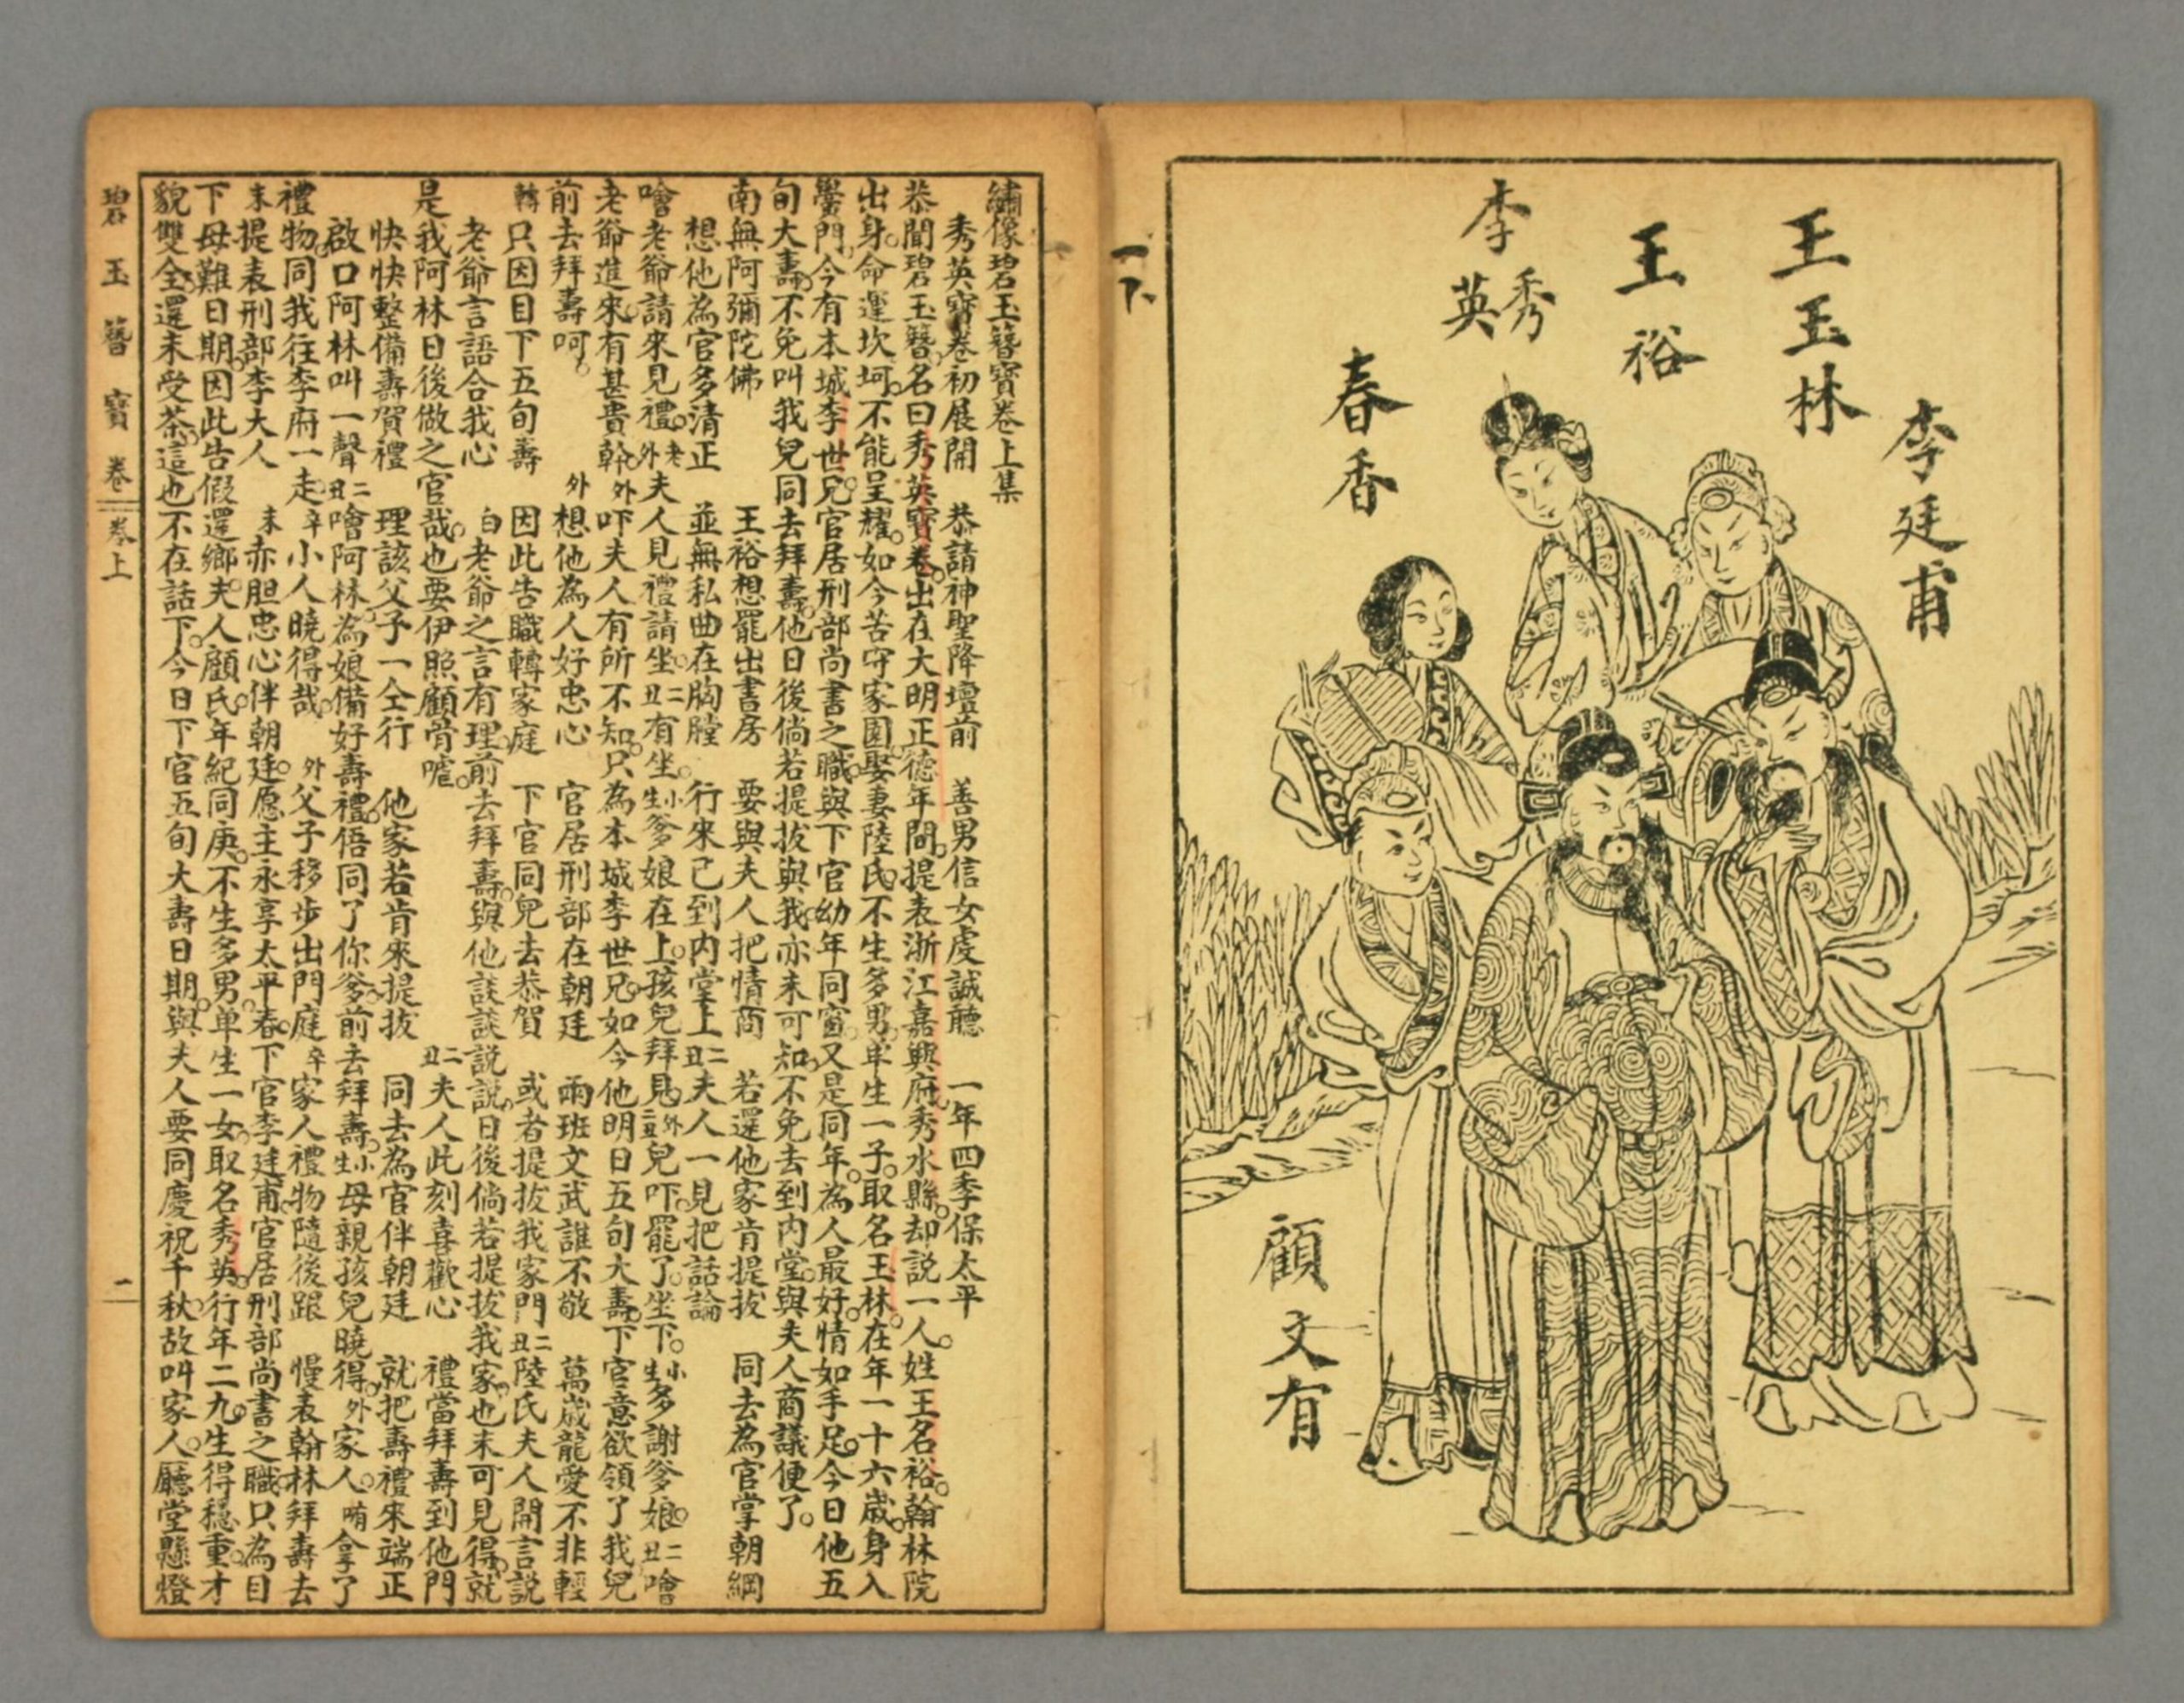 李廷甫
王玉林
王裕
李秀英
春香
顧文有
一下
繡像碧玉簪寶卷上集
秀英寶卷初展開 恭請神聖降壇前 善男信女虔誠聽 一年四季保太平
恭聞碧玉簪名曰秀英寶卷出在大明正德年間提表浙江嘉興府秀水縣却説一人姓王名裕翰林院
出身命運坎坷不能呈耀如今苦守家園娶妻陸氏不生多男單生一子取名王林在年一十六歲身入
黌門今有本城李世兄官居刑部尚書之職與下官幼年同窗又是同年為人最好情如手足今日他五
旬大壽不免叫我兒同去拜壽他日後倘若提拔與我亦未可知不免去到内堂與夫人商議便了
南無阿彌陀佛 王裕想罷出書房 要與夫人把情商 若還他家肯提拔 同去為官掌朝綱
想他為官多清正 並無私曲在胸膛 行來己到内堂上 二丑夫人一見把話論
噲老爺請來見禮老外夫人見禮請坐二丑有坐小生爹娘在上孩兒拜見外二丑兒吓罷了坐下小生多謝爹娘二丑噲
老爺進來有甚貴幹外吓夫人有所不知只為本城李世兄如今他明日五旬大壽下官意欲領了我兒
前去拜壽呵 外想他為人好忠心 官居刑部在朝廷 兩班文武誰不敬 萬歲龍愛不非輕
轉只因目下五旬壽 因此告職轉家庭 下官同兒去恭賀 或者提拔我家門二丑陸氏夫人開言説
老爺言語合我心 白老爺之言有理前去拜壽與他談談説説日後倘若提拔我家也未可見得就
是我阿林日後做之官哉也要伊照顧骨嘘 二丑夫人此刻喜歡心 禮當拜壽到他門
快快整備壽賀禮 理該父子一仝行 他家若肯來提拔 同去為官伴朝廷 就把壽禮來端正
啟口阿林叫一聲二丑噲阿林為娘備好壽禮俉同了你爹前去拜壽小生母親孩兒曉得外家人啃拿了
禮物同我往李府一走卒小人曉得哉 外父子移步出門庭 卒家人禮物隨後跟 慢表翰林拜壽去
末提表刑部李大人 末赤胆忠心伴朝廷愿主永享太平春下官李廷甫官居刑部尚書之職只為目
下母難日期因此告假還鄉夫人顧氏年紀同庚不生多男单生一女取名秀英行年二九生得穩重才
貌雙全還未受茶這也不在話下今日下官五旬大壽日期與夫人要同慶祝千秋故叫家人廳堂懸燈
碧玉簪寶卷 卷上 二